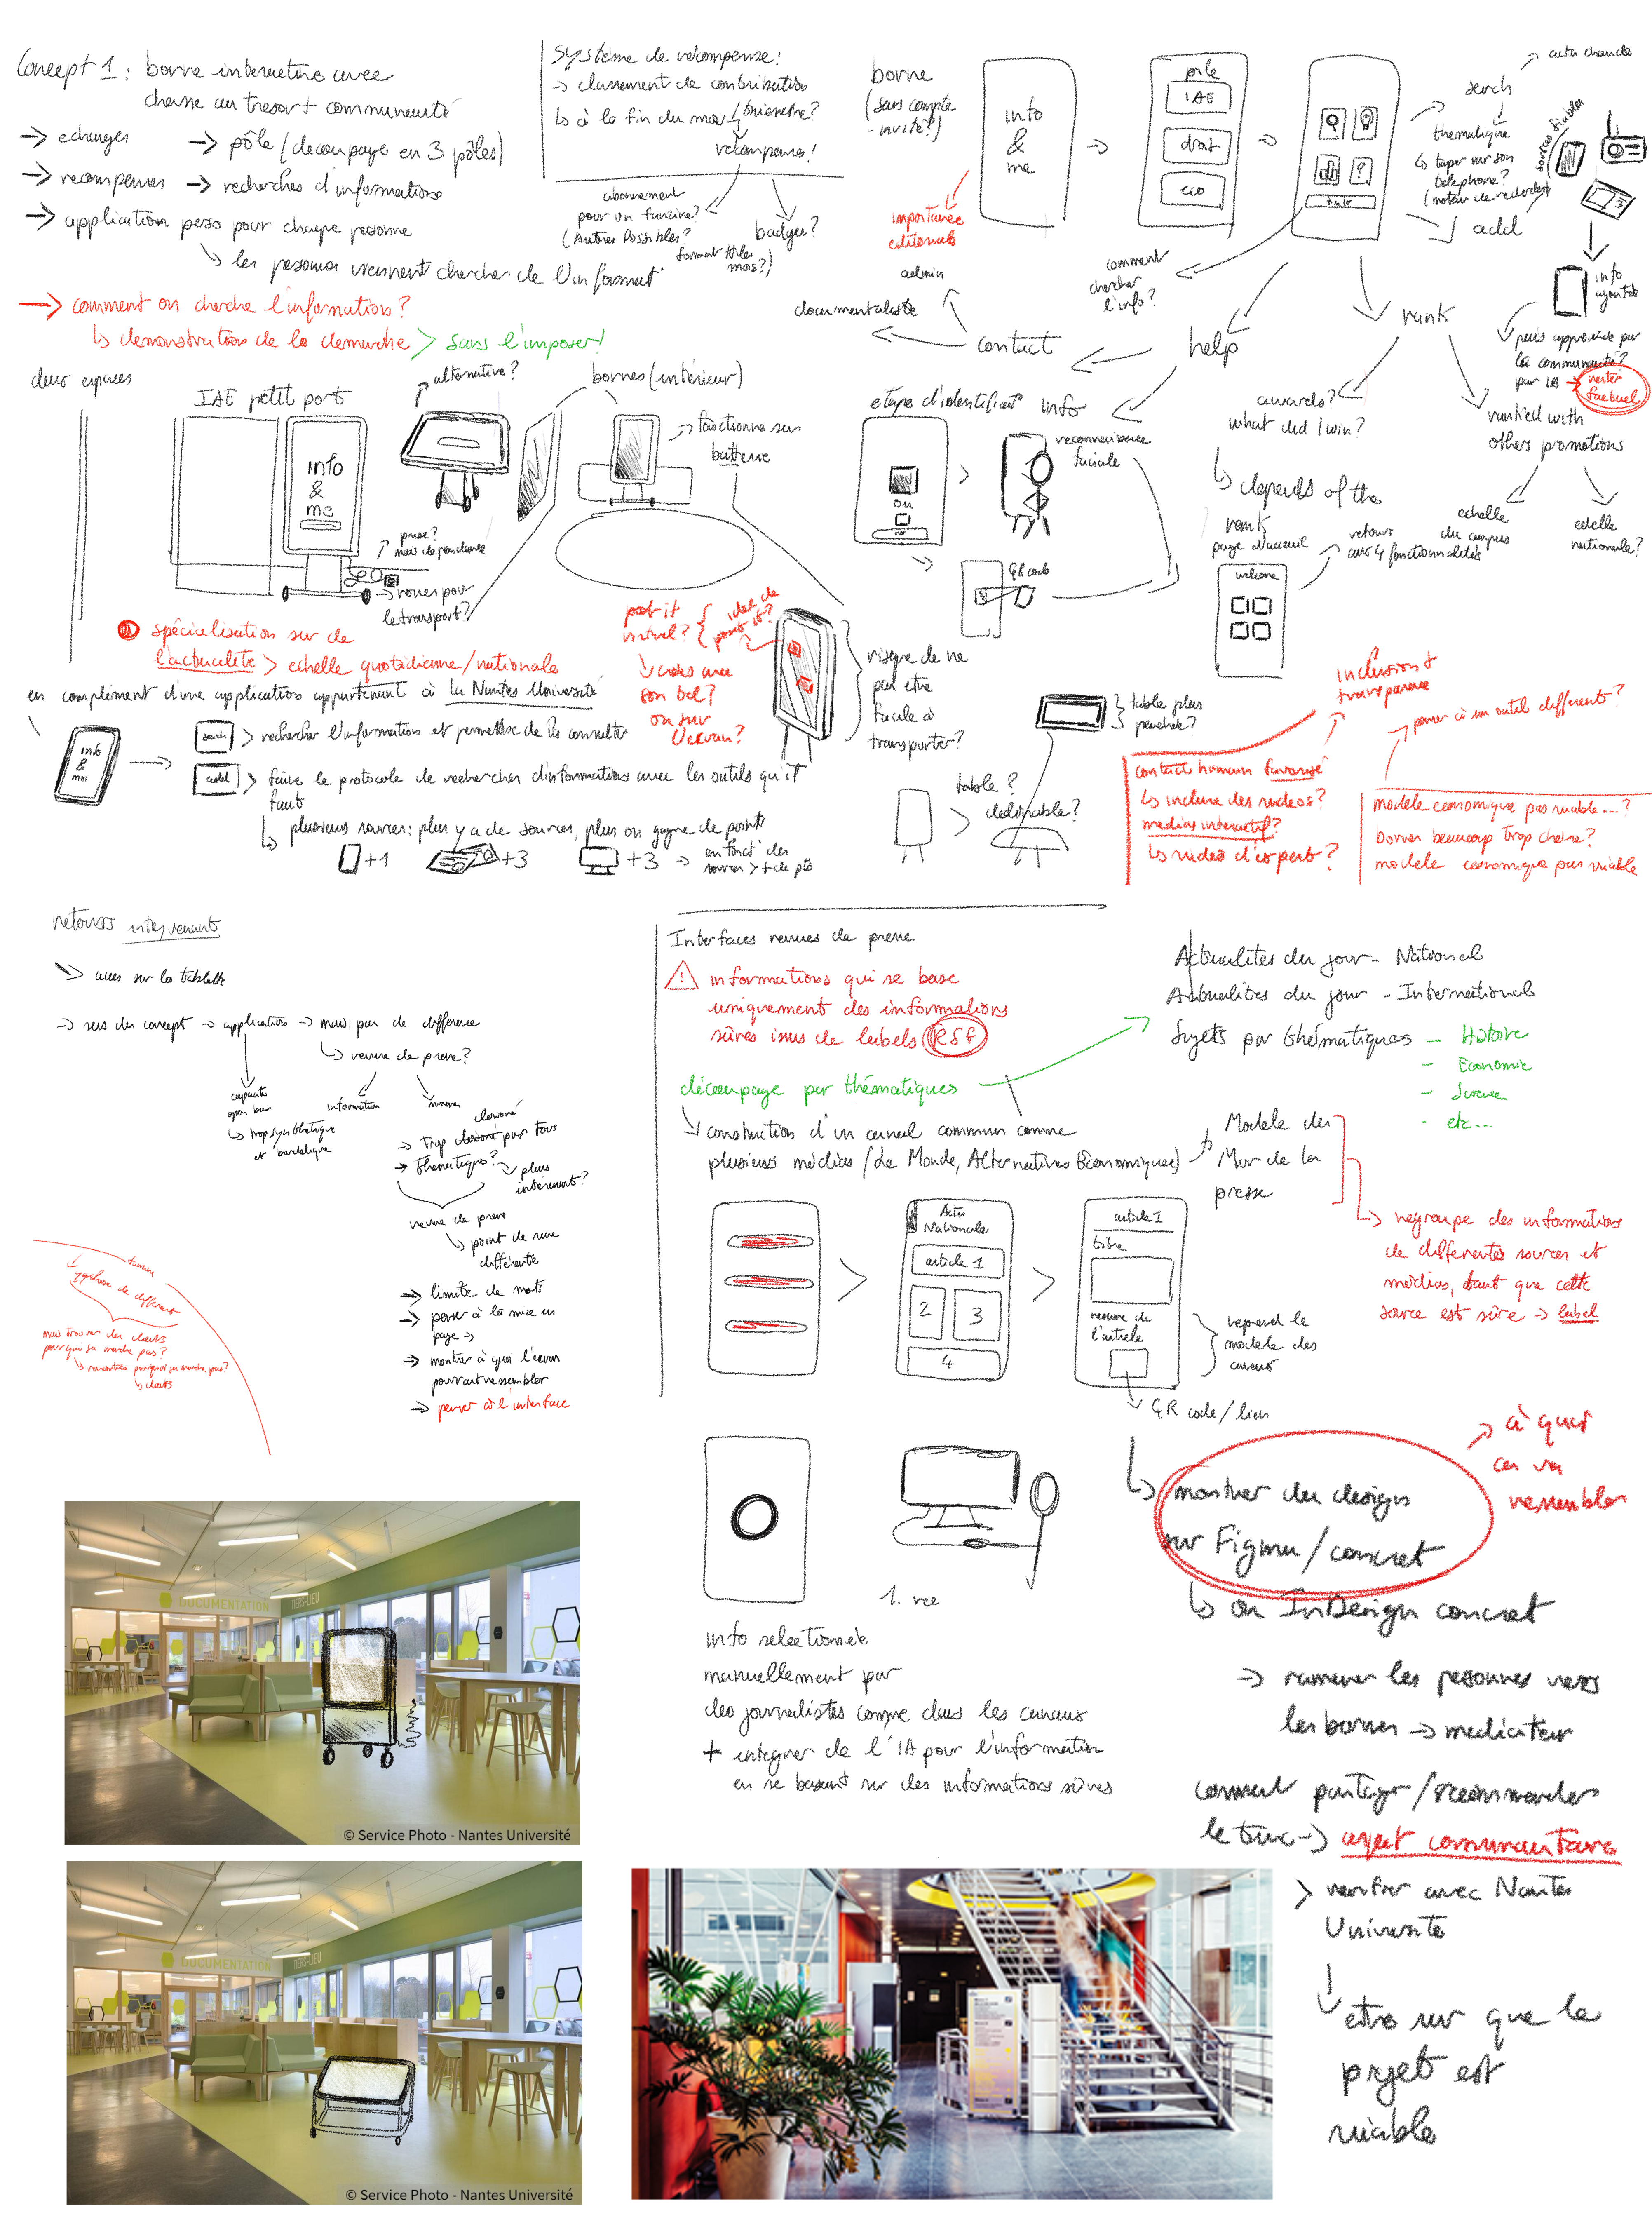 Concept 1 : borne interactive avec
chasse au tresor + communauté
→ echanges
→ pôle (decoupage en 3 pôles)
→ recompenses
→ recherches d'informations
→ application perso pour chaque personne
↳ les personnes viennent chercher de l'informat°
→ comment on cherche l'information ?
↳ demonstration de la demarche > sans l'imposer !
Système de recompense !
→ classement de contribution
↳ à la fin du mois / trimestre ?
recompenses !
abonnement
pour un fanzine ?
(autres possibles ?
format tt les
mois ?)
badges ?
borne
(sans compte
- invité ?)
info
&
me
importance
editoriale
admin
documentaliste
contact
pôle
IAE
droit
eco
comment
chercher
l'info ?
help
serch
actu chaude
thematique
↳ taper sur son
telephone ?
sources fiables
add
info
ajoutée
puis approuvée par
la communauté ?
par IA → rester
factuel
rank
awards ?
what did I win ?
↳ depends of the
rank
ranked with
others promotions
echelle
du campus
echelle
nationale ?
deux espaces
IAE petit port
alternative ?
bornes (intérieur)
→ fonctionne sur
batterie
info
&
me
prise ?
→ roues pour
le transport ?
etape d'identificat°
info
ou
reconnaissance
faciale
QR code
page d'accueil
welcome
retours
aux 4 fonctionnalités
spécialisation sur de
l'actualité > echelle quotidienne/nationale
en complément d'une application appartenant à la Nantes Université
info
&
moi
search > rechercher l'information et permettre de la consulter
add > faire le protocole de recherches d'informations avec les outils qu'il
faut
↳ plusieurs sources : plus y a de sources, plus on gagne de points
+1 +3 +3 → en fonct° des
sources > + de pts
post it
virtuel ?
idée de
post it ?
↳ crées avec
son tel ?
ou sur
l'ecran ?
risque de ne
pas etre
facile à
transporter ?
table plus
penchée ?
table ?
inclusion +
transparence
contact humain favorisé
↳ inclure des videos ?
medias interactif ?
↳ video d'expert ?
penser à un outil different ?
modele economique pas viable ... ?
borner beaucoup trop chère ?
modele economique pas viable
retours intervenants
→ acces sur la tablette
→ sens du concept → application → mais pas de difference
↳ revue de presse ?
↳ trop synthetique
information
→ trop cloisoné pour tous
→ thematiques ?
→ plus
intéressant ?
revue de presse
↳ point de vue
différente
→ limite de mots
→ penser à la mise en
page →
→ montrer à quoi l'écran
pourrait ressembler
→ penser à l'interface
mais trouver des clients
pourquoi ça marche pas ?
↳ rencontres pourquoi ça marche pas ?
↳ clients
Interfaces revues de presse
⚠ informations qui se base
uniquement des informations
sûres issus de labels RSF
découpage par thématiques
↳ construction d'un canal commun comme
plusieurs médias (Le Monde, Alternatives Economiques)
Actualités du jour - National
Actualites du jour - International
Sujets par thématiques - Histoire
- Economie
- Science
- etc...
Modele du
Mur de la
presse
↳ regroupe des informations
de differentes sources et
médias, tant que cette
source est sûre → label
Actu
Nationale
article 1
2
3
4
article 1
titre
resume de
l'article
reprend le
modele des
canaux
→ QR code / lien
info selectionnée
manuellement par
des journalistes comme dans les canaux
+ integrer de l'IA pour l'information
en se basant sur des informations sûres
↳ montrer du design
sur Figma / concret
→ à quoi
ça va
ressembler
↳ ou InDesign concret
→ ramener les personnes vers
les bornes → mediateur
comment partager / recommander
le truc → aspect communautaire
> verifier avec Nantes
Université
etre sur que le
projet est
viable
DOCUMENTATION
TIERS-LIEU
© Service Photo - Nantes Université
DOCUMENTATION
TIERS-LIEU
© Service Photo - Nantes Université